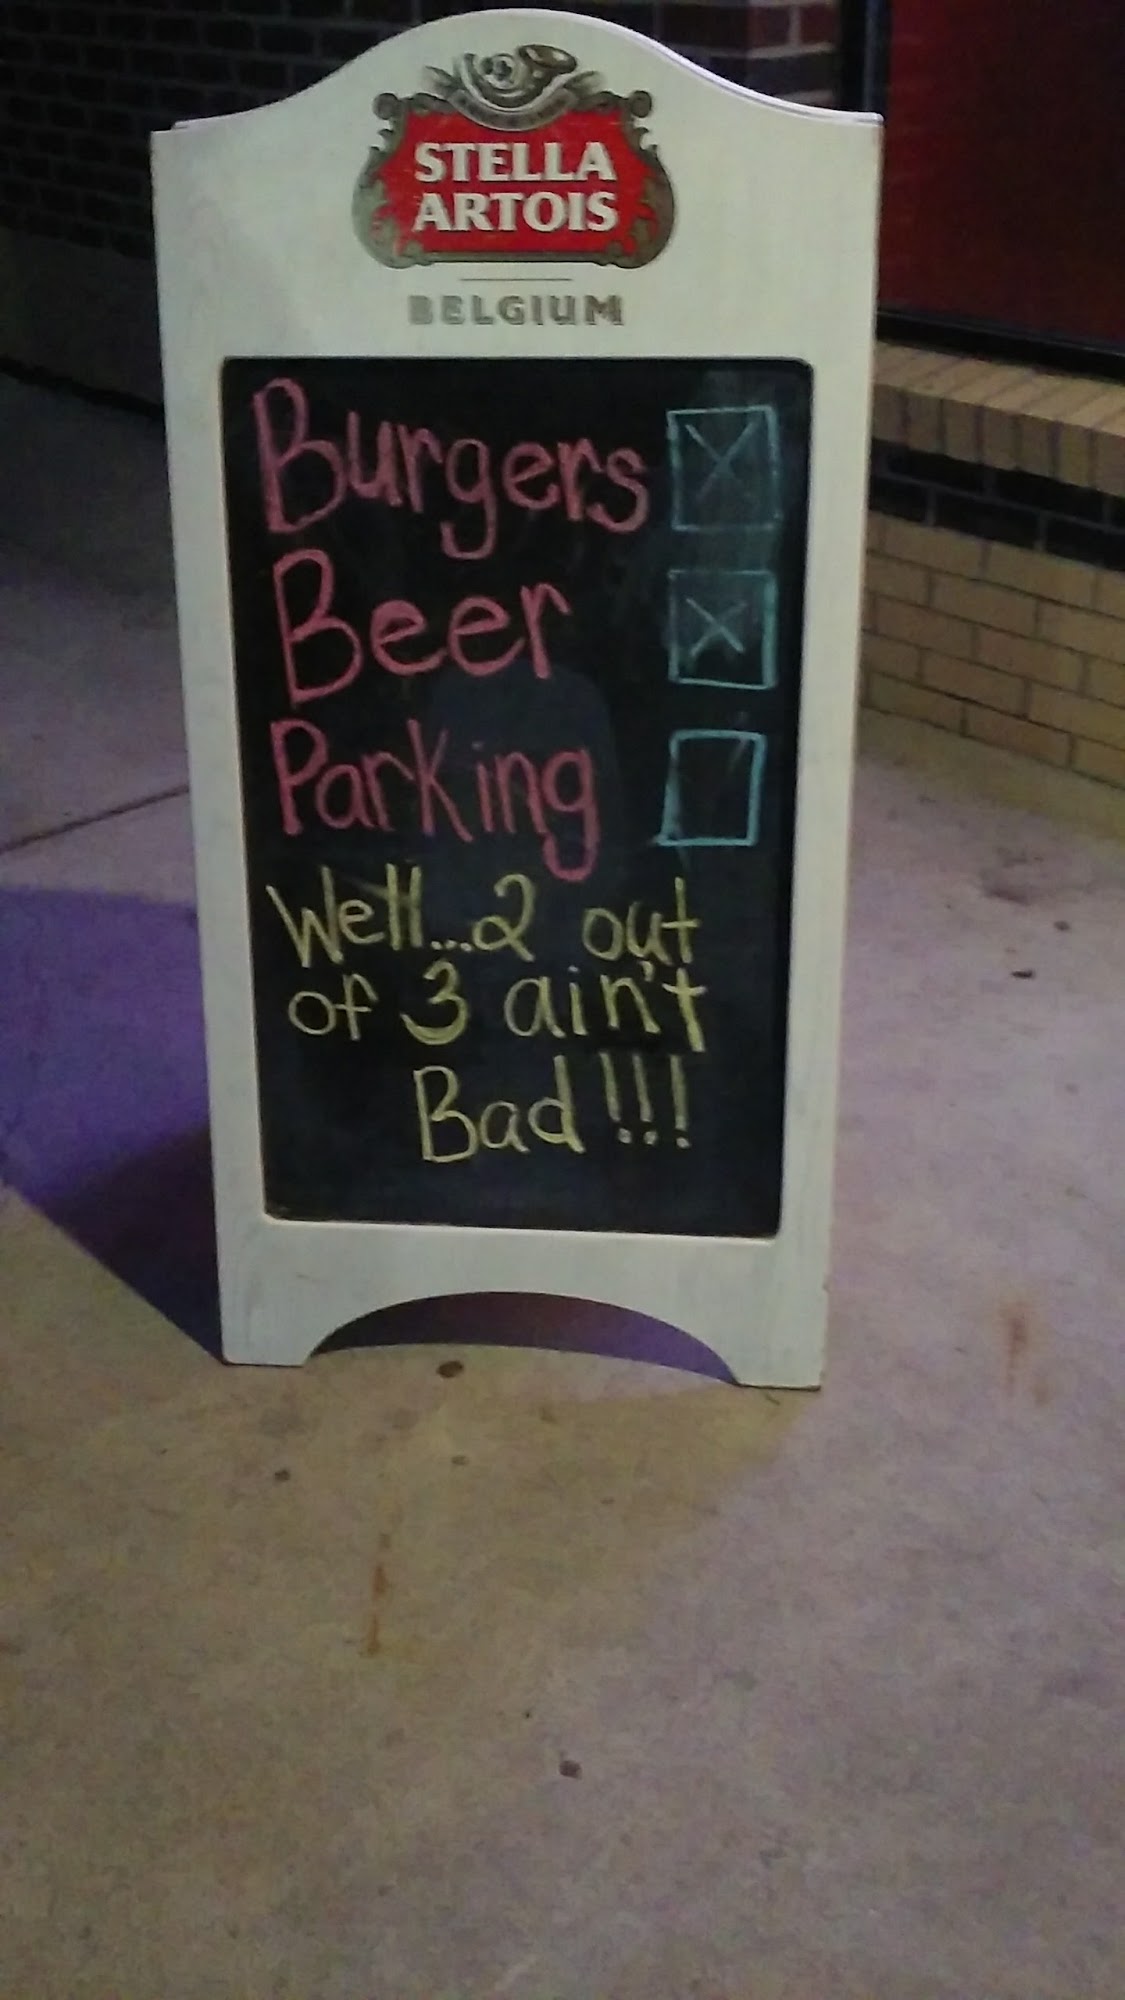 STELLA
ARTOIS
BELGIUM
Burgers
Beer
Parking
Well...2 out
of 3 ain't
Bad!!!